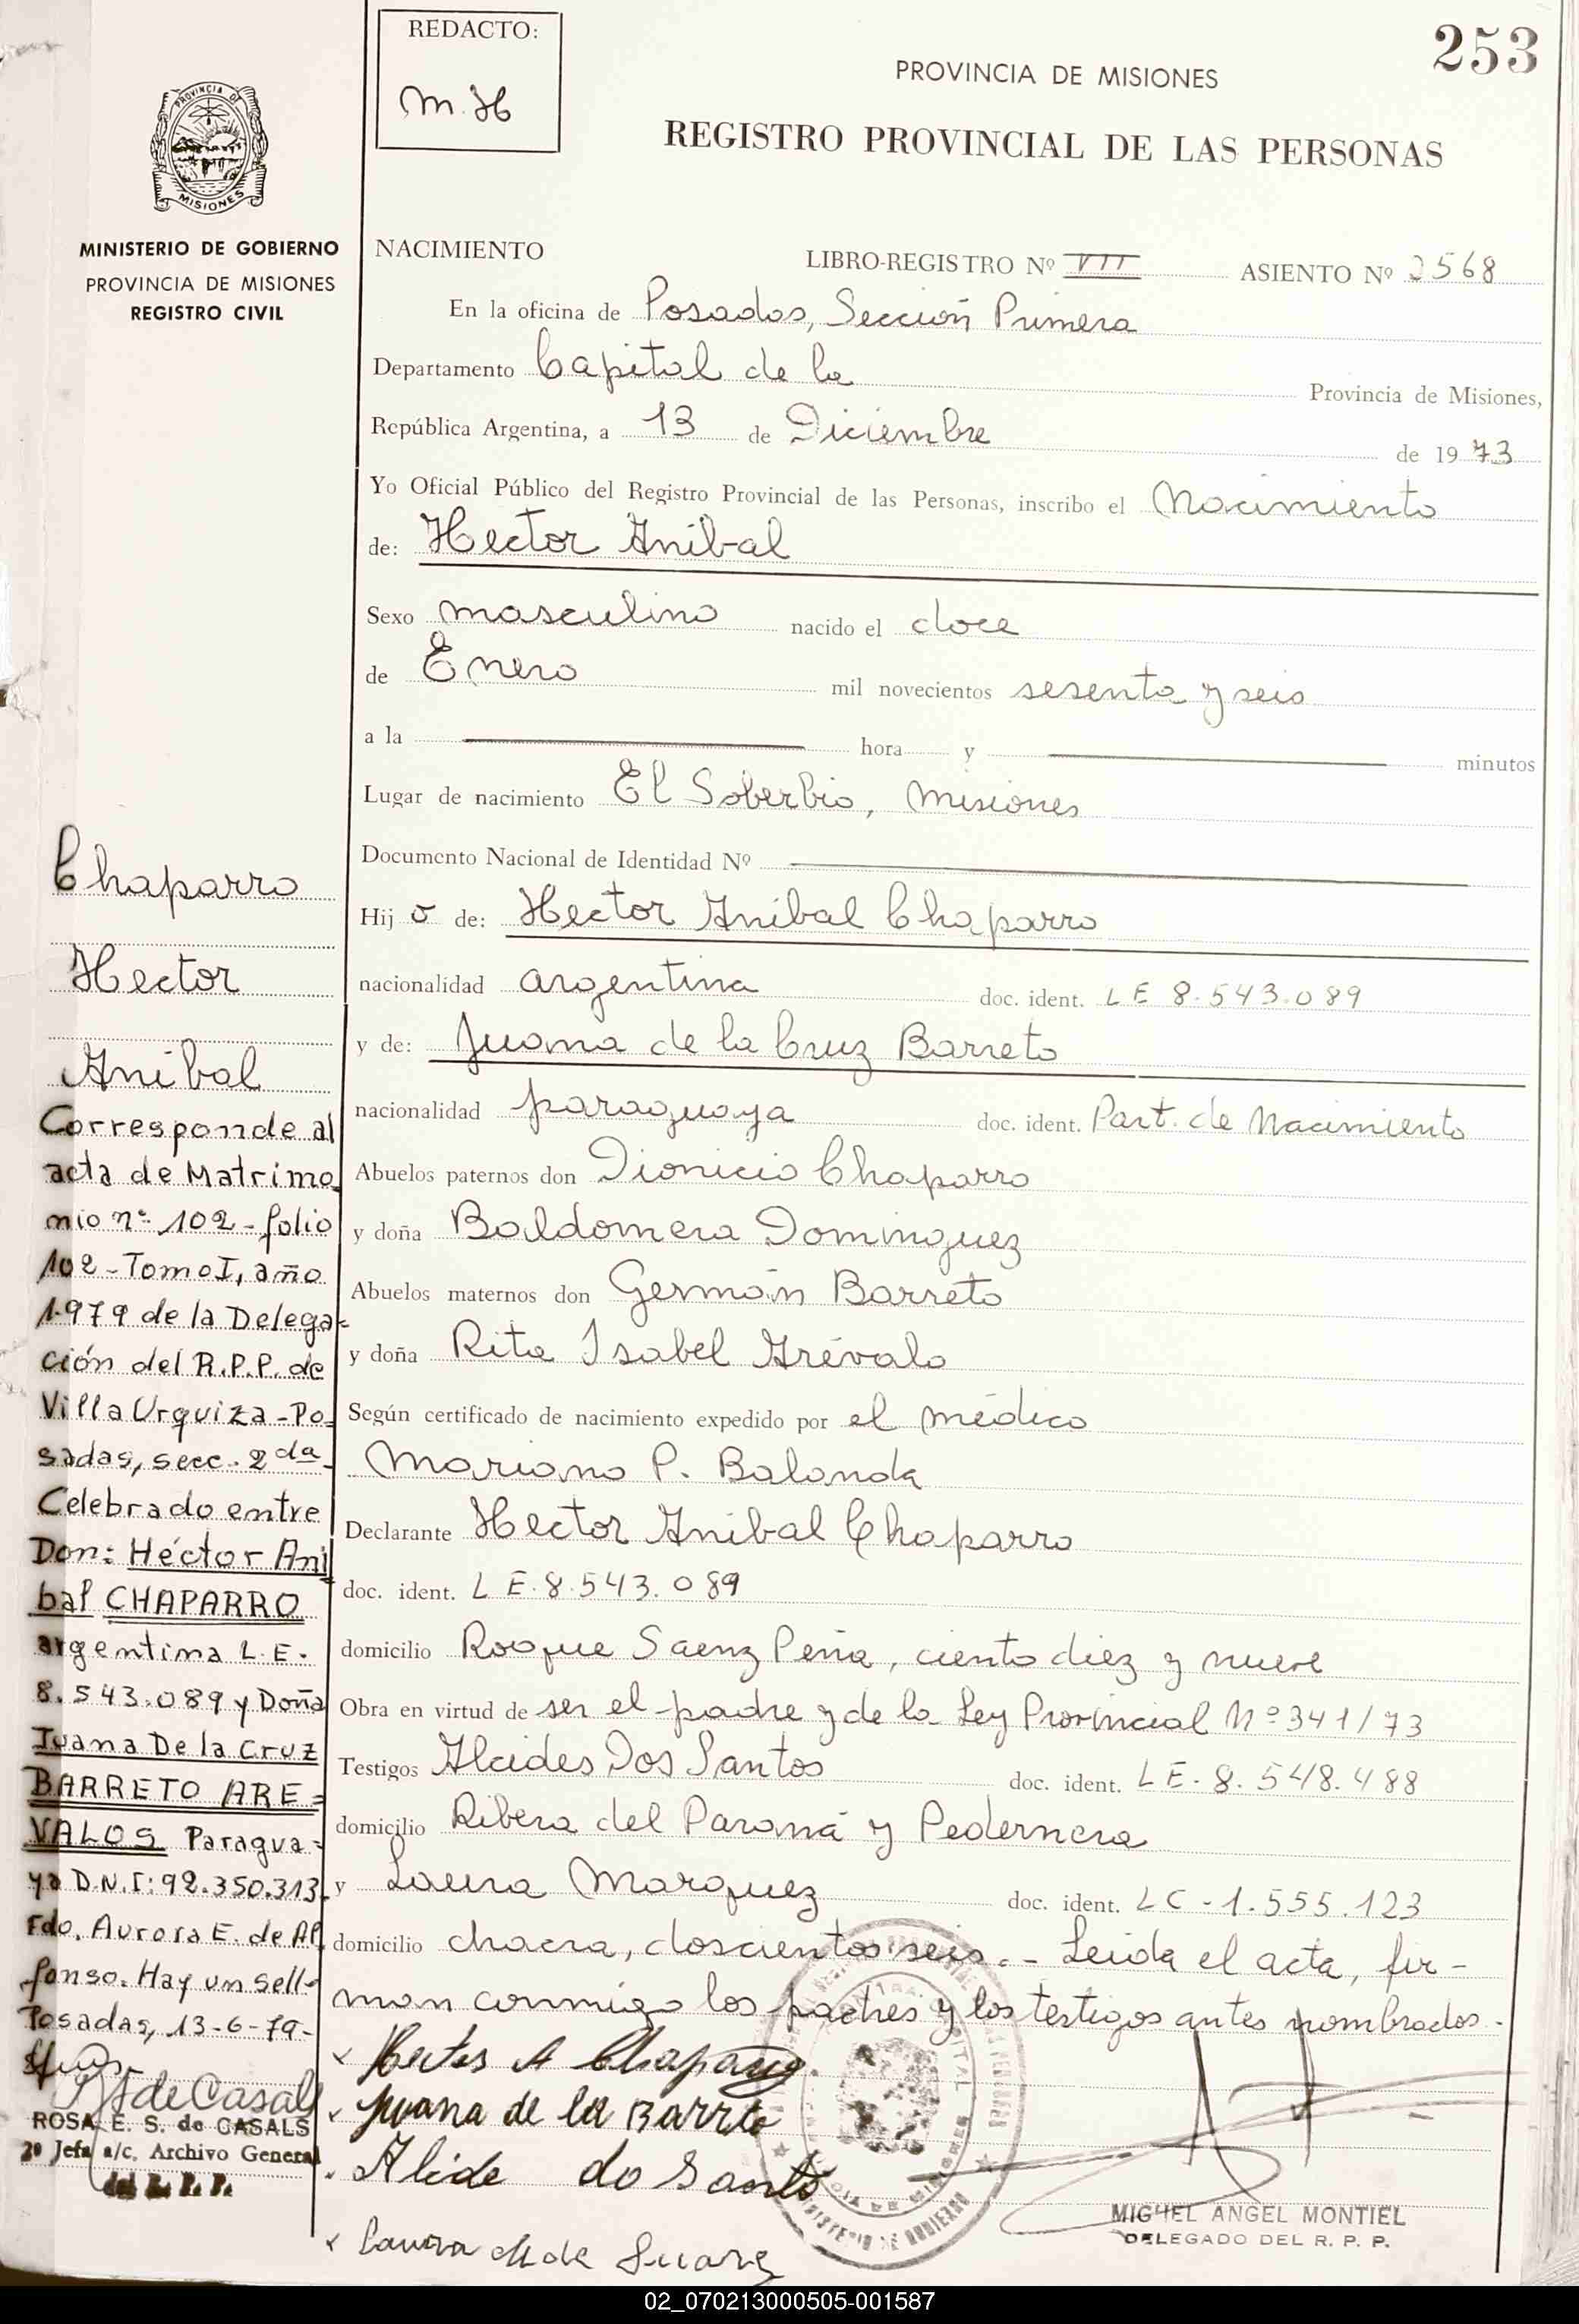 REDACTO:
M. H
253
PROVINCIA DE MISIONES
REGISTRO PROVINCIAL DE LAS PERSONAS
PROVINCIA DE
MISIONES
MINISTERIO DE GOBIERNO
PROVINCIA DE MISIONES
REGISTRO CIVIL
NACIMIENTO LIBRO-REGISTRO Nº VII ASIENTO Nº 2568
En la oficina de Posadas, Sección Primera
Departamento Capital de la Provincia de Misiones,
República Argentina, a 13 de Diciembre de 1973
Yo Oficial Público del Registro Provincial de las Personas, inscribo el Nacimiento
de: Hector Anibal
Sexo masculino nacido el doce
de Enero mil novecientos sesenta y seis
a la hora y minutos
Lugar de nacimiento El Soberbio, Misiones
Documento Nacional de Identidad Nº
Hij o de: Hector Anibal Chaparro
nacionalidad argentina doc. ident. LE 8.543.089
y de: Juana de la Cruz Barreto
nacionalidad paraguaya doc. ident. Part. de Nacimiento
Abuelos paternos don Dionicio Chaparro
y doña Baldomera Dominguez
Abuelos maternos don Germán Barreto
y doña Rita Isabel Arévalo
Según certificado de nacimiento expedido por el médico
Mariano P. Balanda
Declarante Hector Anibal Chaparro
doc. ident. L E. 8.543.089
domicilio Roque Saenz Peña, ciento diez y nueve
Obra en virtud de ser el padre y de la Ley Provincial Nº 341/73
Testigos Alcides Dos Santos doc. ident. LE- 8.548.488
domicilio Ribera del Paraná y Pedernera
y Laura Marquez doc. ident. LC - 1.555.123
domicilio chacra, doscientos seis.- Leida el acta, fir-
man conmigo los padres y los testigos antes nombrados.
Hector A Chaparro
Juana de la Barreto
Alcide do Santo
Laura M de Suarez
MIGUEL ANGEL MONTIEL
DELEGADO DEL R. P. P.
Chaparro
Hector
Anibal
Corresponde al
acta de Matrimo
nio nº 102 - folio
102 - Tomo I, año
1.979 de la Delega=
ción del R.P.P. de
Villa Urquiza - Po=
sadas, secc. 2da-
Celebrado entre
Don: Héctor Aní
bal CHAPARRO
argentina L.E.
8.543.089 y Doña
Juana De la Cruz
BARRETO ARE=
VALOS Paragua=
ya D.N.I: 92.350.313.
Fdo. Aurora E. de Al
fonso. Hay un sell-
Posadas, 13-6-79-
R E S de Casals
ROSA E. S. de CASALS
2º Jefa a/c. Archivo General
del R. P. P.
02_070213000505-001587